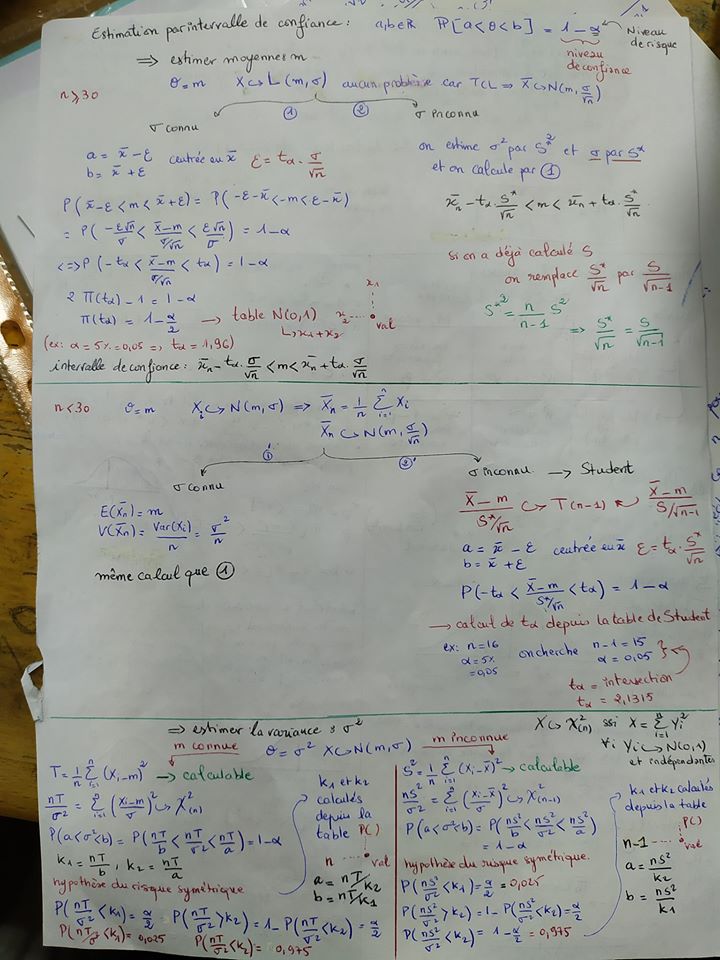 Estimation par intervalle de confiance : a,b∈R P[a<θ<b] = 1-α
Niveau de risque
niveau de confiance
⇒ estimer moyennes m
n ≥ 30
θ=m X↪L(m,σ) aucun problème car TCL ⇒ X̄↪N(m, σ/√n)
① ②
σ connu
a = x̄ - ε centrée en x̄ ε = tα · σ/√n
b = x̄ + ε
P(x̄-ε < m < x̄+ε) = P(-ε-x̄ < -m < ε-x̄)
= P(-ε√n/σ < (x̄-m)/(σ/√n) < ε√n/σ) = 1-α
<=> P(-tα < (x̄-m)/(σ/√n) < tα) = 1-α
2 Π(tα) - 1 = 1-α
Π(tα) = 1 - α/2 → table N(0,1)
↳ x1 + x2
x1
x2 val
(ex: α = 5% = 0,05 => tα = 1,96)
intervalle de confiance : x̄n - tα · σ/√n < m < x̄n + tα · σ/√n
σ inconnu
on estime σ² par S*² et σ par S*
et on calcule par ①
x̄n - tα · S*/√n < m < x̄n + tα · S*/√n
si on a déjà calculé S
on remplace S*/√n par S/√(n-1)
S*² = n/(n-1) S²
=> S*/√n = S/√(n-1)
n < 30
θ=m Xi↪N(m,σ) ⇒ X̄n = 1/n Σ(i=1..n) Xi
X̄n ↪ N(m, σ/√n)
①' ②'
σ connu
E(X̄n) = m
V(X̄n) = Var(Xi)/n = σ²/n
même calcul que ①
σ inconnu → Student
(X̄-m)/(S*/√n) ↪ T(n-1) ↩ (X̄-m)/(S/√(n-1))
a = x̄ - ε centrée en x̄ ε = tα · S*/√n
b = x̄ + ε
P(-tα < (X̄-m)/(S*/√n) < tα) = 1-α
→ calcul de tα depuis la table de Student
ex: n=16 on cherche n-1 = 15
α = 5% α = 0,05
= 0,05
tα = intersection
tα = 2,1315
⇒ estimer la variance : σ²
X↪χ²(n) ssi X = Σ(i=1..n) Yi²
∀i Yi↪N(0,1)
et indépendantes
m connue θ = σ² X↪N(m,σ) m inconnue
T = 1/n Σ(i=1..n) (Xi-m)² → calculable
nT/σ² = Σ(i=1..n) ((Xi-m)/σ)² ↪ χ²(n)
P(a<σ²<b) = P(nT/b < nT/σ² < nT/a) = 1-α
k1 = nT/b , k2 = nT/a
hypothèse du risque symétrique
P(nT/σ² < k1) = α/2 P(nT/σ² > k2) = 1 - P(nT/σ² < k2) = α/2
P(nT/σ² < k1) = 0,025 P(nT/σ² < k2) = 0,975
k1 et k2
calculés
depuis la
table P()
n val
a = nT/k2
b = nT/k1
S² = 1/n Σ(i=1..n) (Xi-X̄)² → calculable
nS²/σ² = Σ(i=1..n) ((Xi-X̄)/σ)² ↪ χ²(n-1)
P(a<σ²<b) = P(nS²/b < nS²/σ² < nS²/a)
= 1-α
hypothèse du risque symétrique.
P(nS²/σ² < k1) = α/2 = 0,025
P(nS²/σ² > k2) = 1 - P(nS²/σ² < k2) = α/2
P(nS²/σ² < k2) = 1 - α/2 = 0,975
k1 et k2 calculés
depuis la table
P()
n-1 val
a = nS²/k2
b = nS²/k1